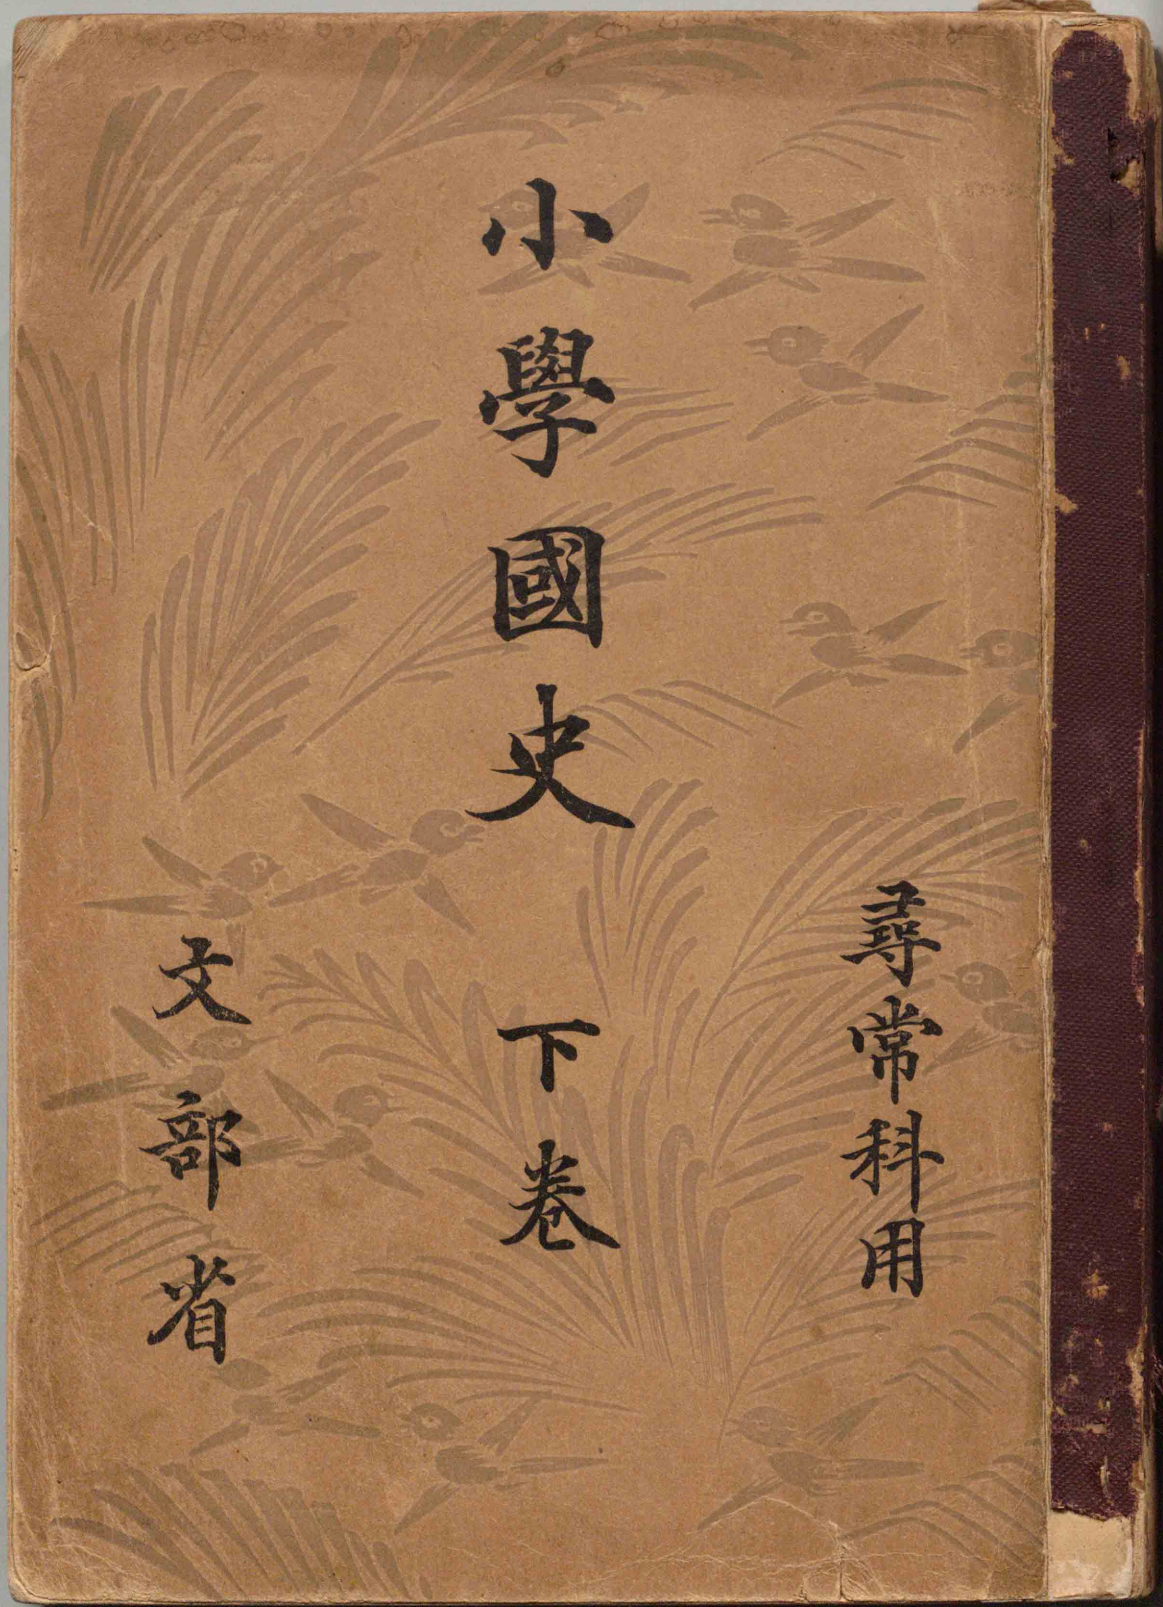 尋常科用
小學國史 下卷
文部省